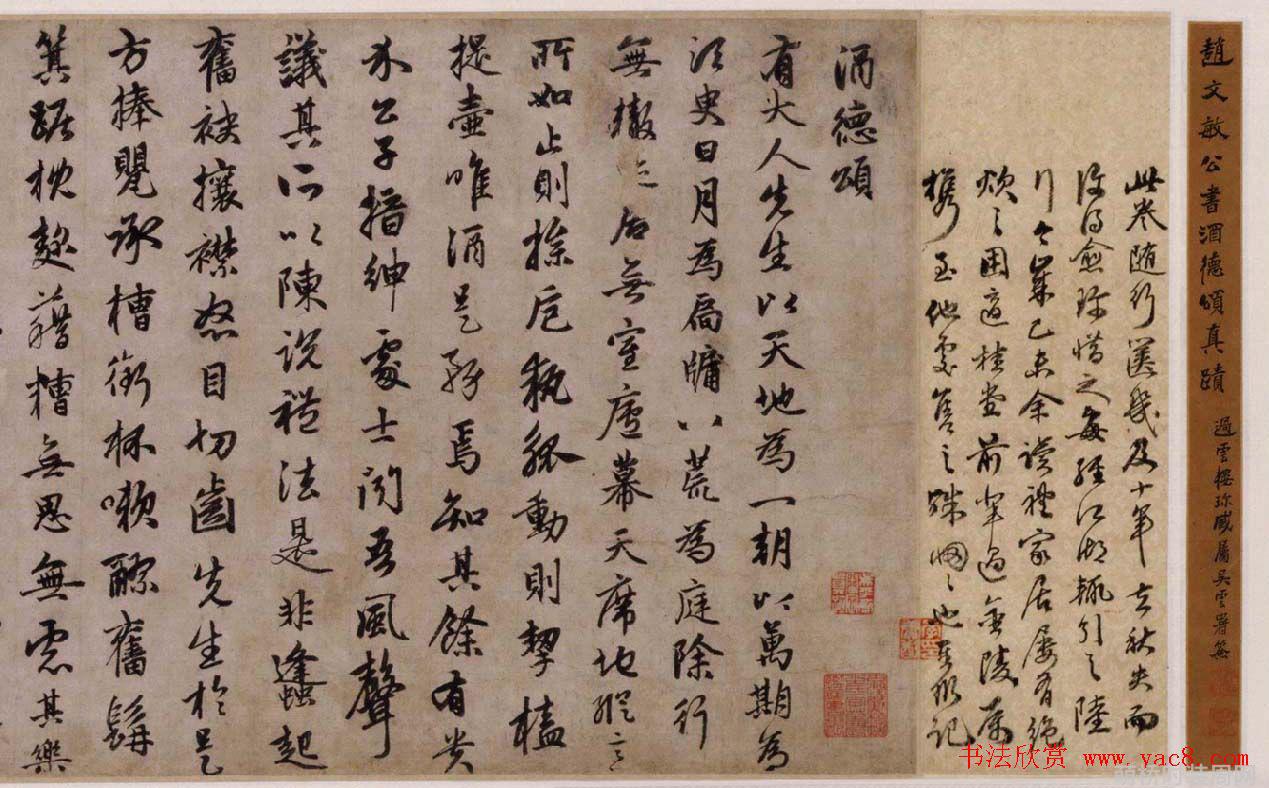 趙文敏公書酒德頌真蹟
過雲樓珍藏屬吳雲署籤
此卷隨行篋幾及十年去秋失而
復得愈珍惜之每經江湖輒引之陸
行今歲己未余讀禮家居屢有絕
炊之困適桂堂前輩過陵屬
攜至他處售之殊惘惘也記
酒德頌
有大人先生以天地為一朝以萬期為
須臾日月為扃牖八荒為庭除行
無轍迹居無室廬幕天席地縱意
所如止則操卮執觚動則挈榼
提壺唯酒是務焉知其餘有貴
介公子搢紳處士聞吾風聲
議其所以陳説禮法是非蠭起
奮袂攘襟怒目切齒先生於是
方捧甖承槽銜杯嗽醪奮髯
箕踞枕麴藉糟無思無慮其樂
书法欣赏 www.yac8.com